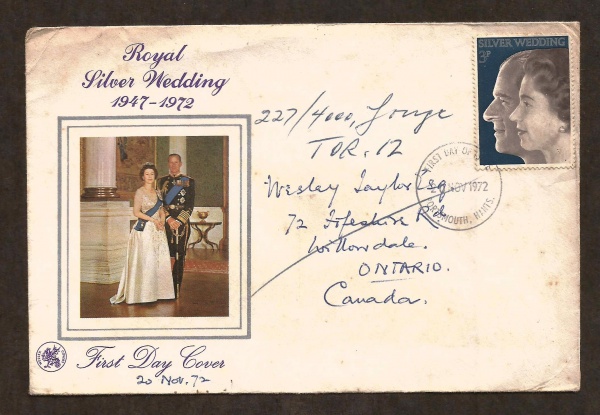 Royal
Silver Wedding
1947-1972
SILVER WEDDING
3P
227/4000, Yonge
TOR. 12
FIRST DAY OF
NOV 1972
PORTSMOUTH, HANTS.
Wesley Taylor Esq
72 Fifeshire Rd
Willowdale.
ONTARIO.
Canada.
First Day Cover
20 Nov. 72